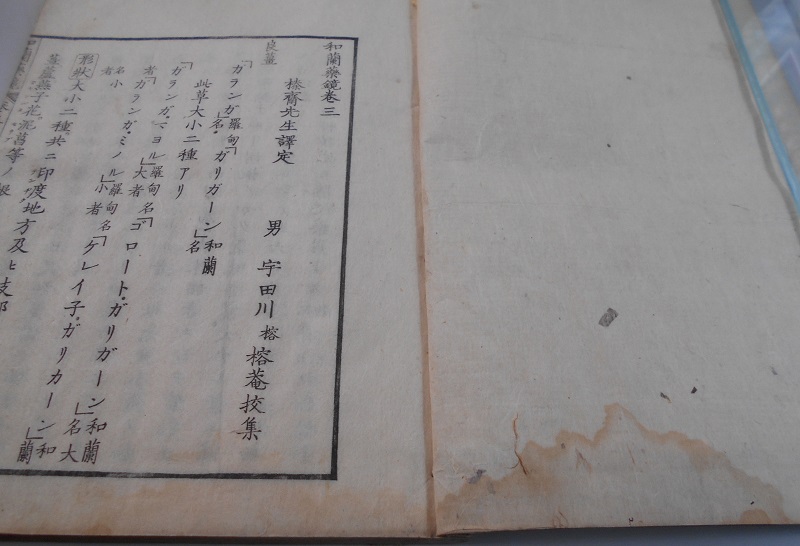 和蘭藥鏡卷三
榛齋先生譯定　男　宇田川榕　榕菴挍集
良薑
「ガランガ」羅甸名「ガリガーン」和蘭名
此草大小二種アリ
「ガランガ・マヨル」羅甸名大者「ゴロート・ガリガーン」和蘭名大
者「ガランガ・ミノル」羅甸名小者「ケレイ子・ガリカーン」和蘭
名小者
形狀大小二種共ニ印度地方及ヒ支那
燕子花泥菖等ノ根